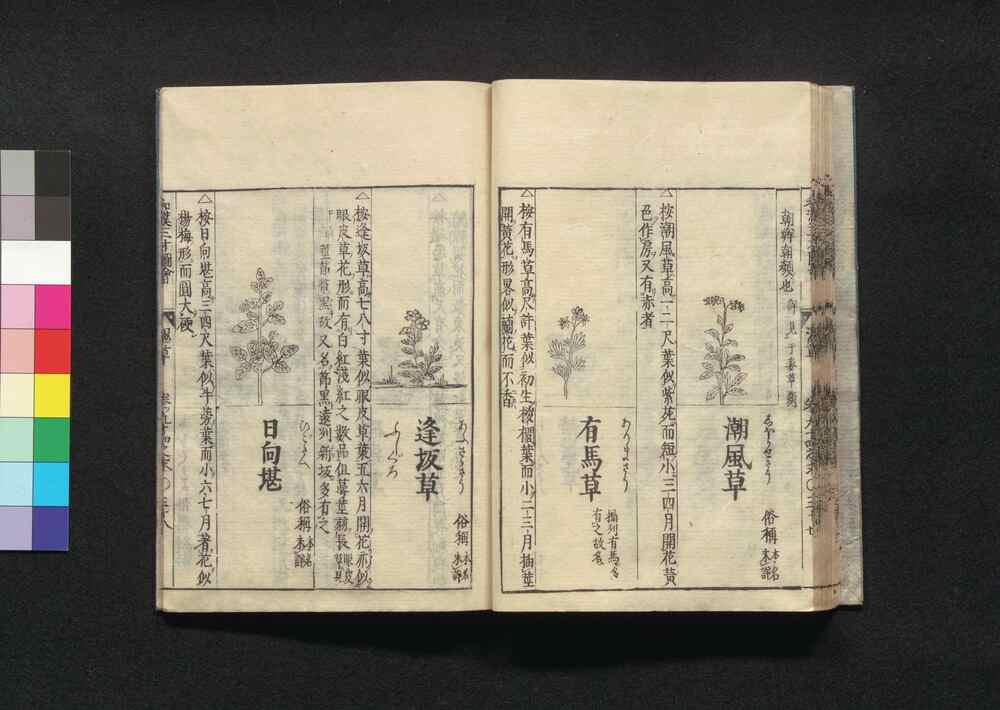 朝幹朝顏也
潮風草
俗稱
本名
未詳
△按潮風草高一二尺葉似紫苑而短小三四月開花黃
色作房又有赤者
ありまさう
有馬草
攝州有馬多
有之故名
△按有馬草高尺許葉似初生椶櫚葉而小二三月抽莖
開黃花形畧似蘭花而不香
逢坂草
ふしぐろ
俗稱
本名
未詳
△按逢坂草高七八寸葉似眼皮草葉五六月開花亦似
眼皮草花形而有白紅淺紅之數品但莖
故又名節黑遠州新坂多有之
日向堪
俗稱
本名
未詳
△按日向堪高三四尺葉似牛蒡葉而小六七月著花似
楊梅形而圓大硬
和漢三才圖會